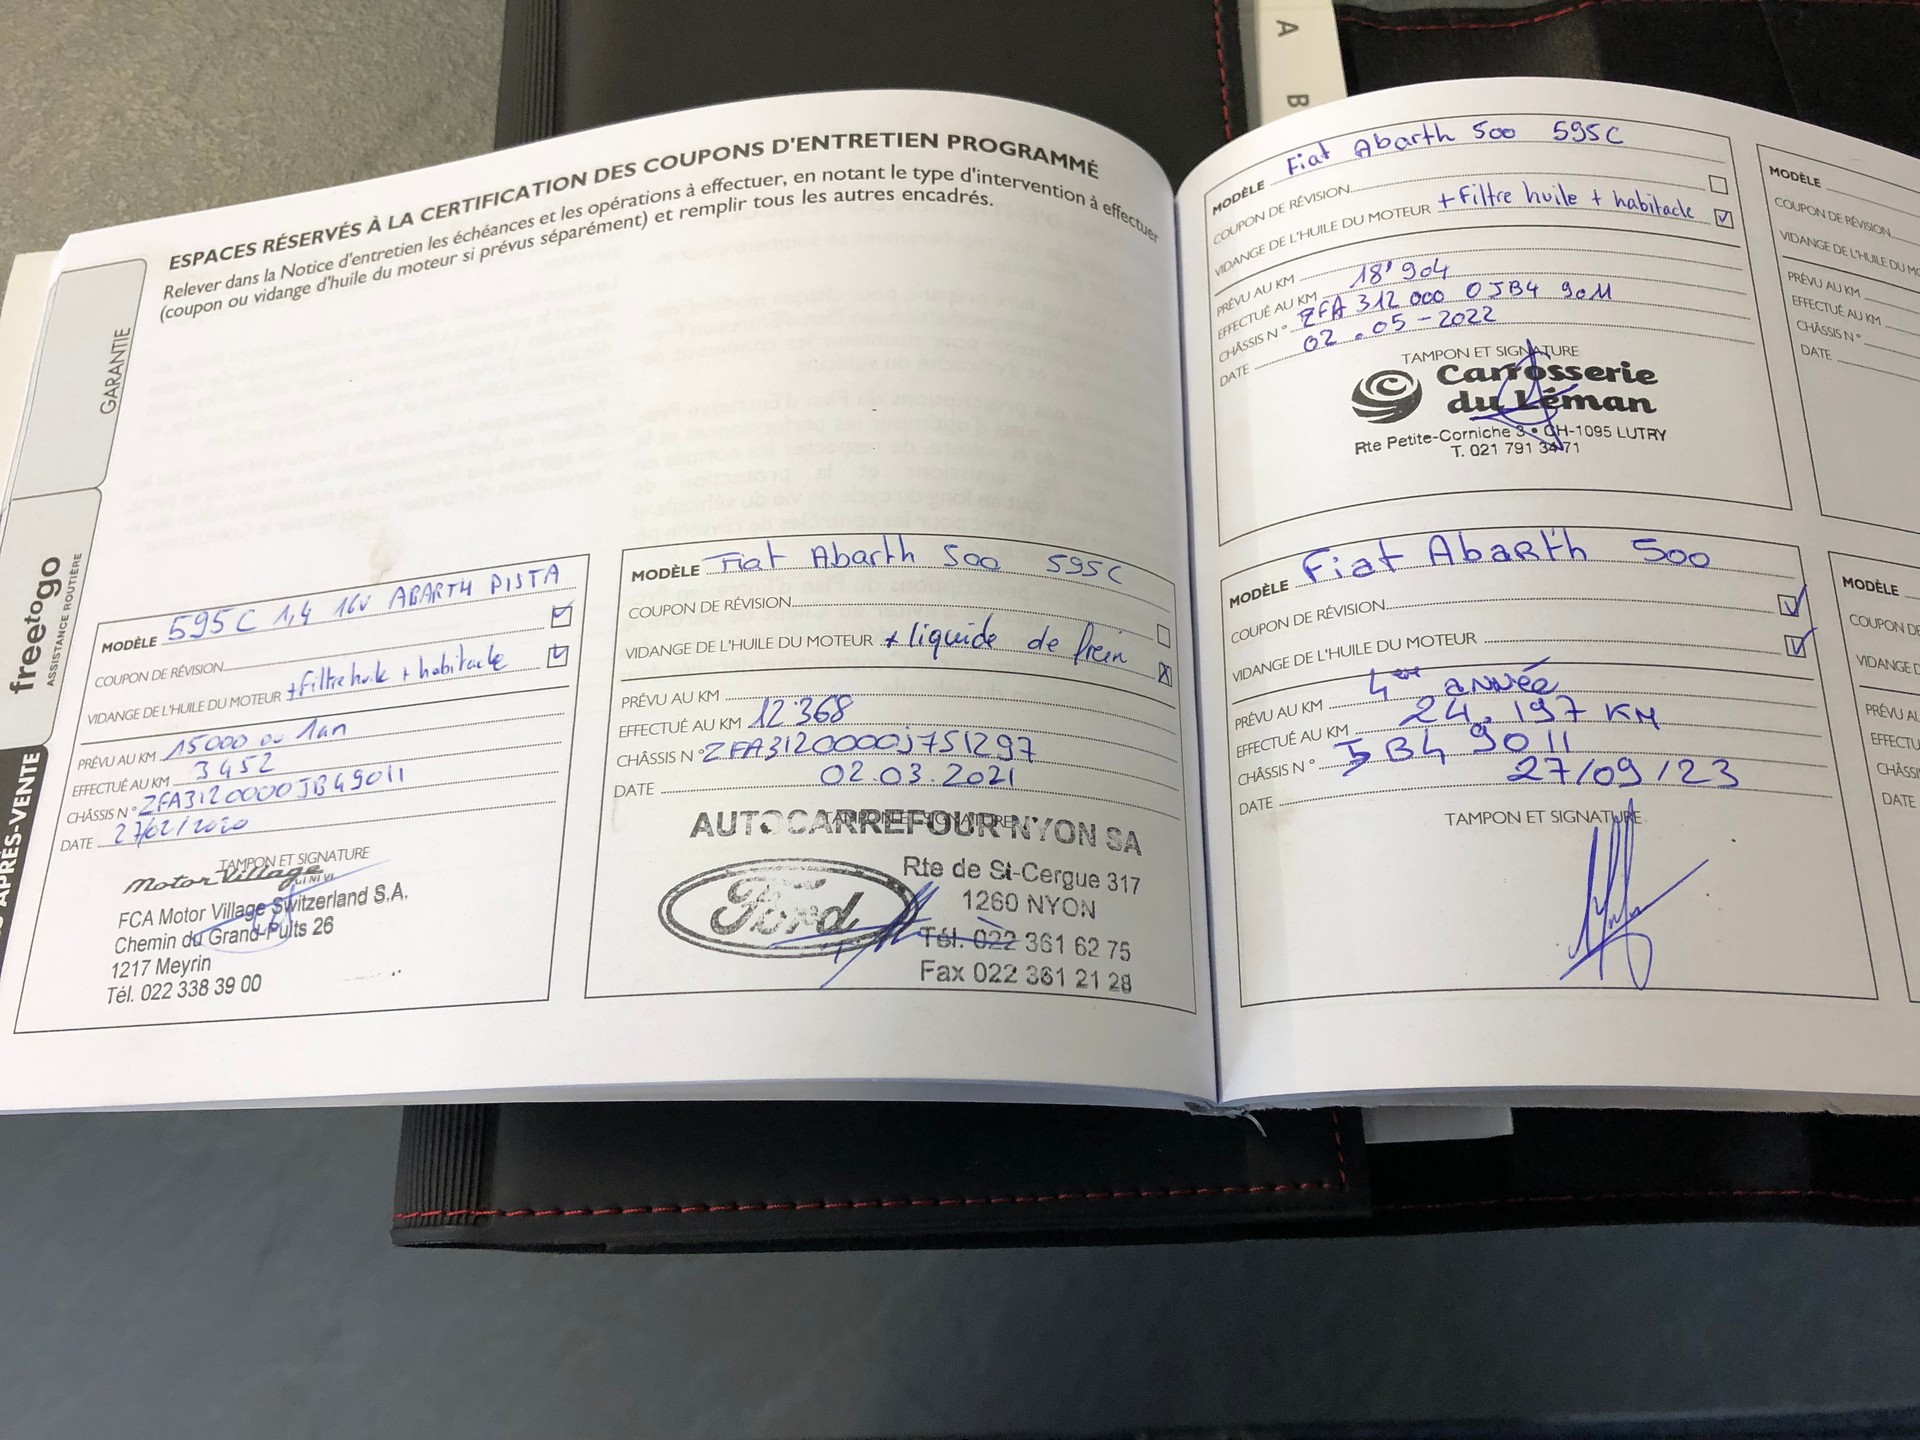 A
B
ESPACES RÉSERVÉS À LA CERTIFICATION DES COUPONS D'ENTRETIEN PROGRAMMÉ
Relever dans la Notice d'entretien les échéances et les opérations à effectuer, en notant le type d'intervention à effectuer
(coupon ou vidange d'huile du moteur si prévus séparément) et remplir tous les autres encadrés.
GARANTIE
freetogo
ASSISTANCE ROUTIÈRE
APRÈS-VENTE
MODÈLE 595C 1,4 16V ABARTH PISTA
COUPON DE RÉVISION
VIDANGE DE L'HUILE DU MOTEUR + Filtre huile + habitacle
PRÉVU AU KM 15000 ou 1an
EFFECTUÉ AU KM 3452
CHÂSSIS N° ZFA3120000JB49011
DATE 27/02/2020
TAMPON ET SIGNATURE
Motor Village
FCA Motor Village Switzerland S.A.
Chemin du Grand-Puits 26
1217 Meyrin
Tél. 022 338 39 00
MODÈLE Fiat Abarth 500 595C
COUPON DE RÉVISION
VIDANGE DE L'HUILE DU MOTEUR + liquide de frein
PRÉVU AU KM
EFFECTUÉ AU KM 12'368
CHÂSSIS N° ZFA3120000J751297
DATE 02.03.2021
TAMPON ET SIGNATURE
AUTOCARREFOUR NYON SA
Ford
Rte de St-Cergue 317
1260 NYON
Tél. 022 361 62 75
Fax 022 361 21 28
MODÈLE Fiat Abarth 500 595C
COUPON DE RÉVISION
VIDANGE DE L'HUILE DU MOTEUR + Filtre huile + habitacle
PRÉVU AU KM
EFFECTUÉ AU KM 18'904
CHÂSSIS N° ZFA 312 000 0JB4 9011
DATE 02.05-2022
TAMPON ET SIGNATURE
Carrosserie
du Léman
Rte Petite-Corniche 3 • CH-1095 LUTRY
T. 021 791 34 71
MODÈLE Fiat Abarth 500
COUPON DE RÉVISION
VIDANGE DE L'HUILE DU MOTEUR
PRÉVU AU KM 4ème année
EFFECTUÉ AU KM 24.197 KM
CHÂSSIS N° JB4 9011
DATE 27/09/23
TAMPON ET SIGNATURE
MODÈLE
COUPON DE RÉVISION
VIDANGE DE L'HUILE DU MO
PRÉVU AU KM
EFFECTUÉ AU KM
CHÂSSIS N°
DATE
MODÈLE
COUPON DE
VIDANGE D
PRÉVU AU
EFFECTU
CHÂSSIS
DATE